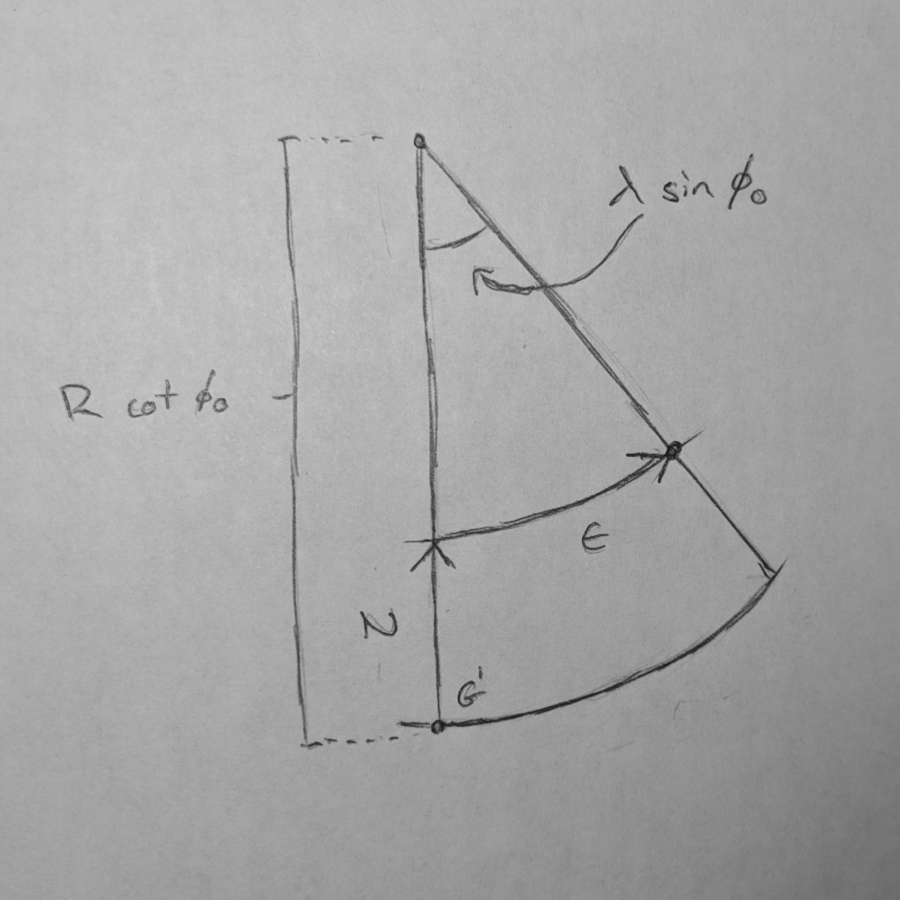 λ sin ϕ₀
R cot ϕ₀
ϵ
N
G'